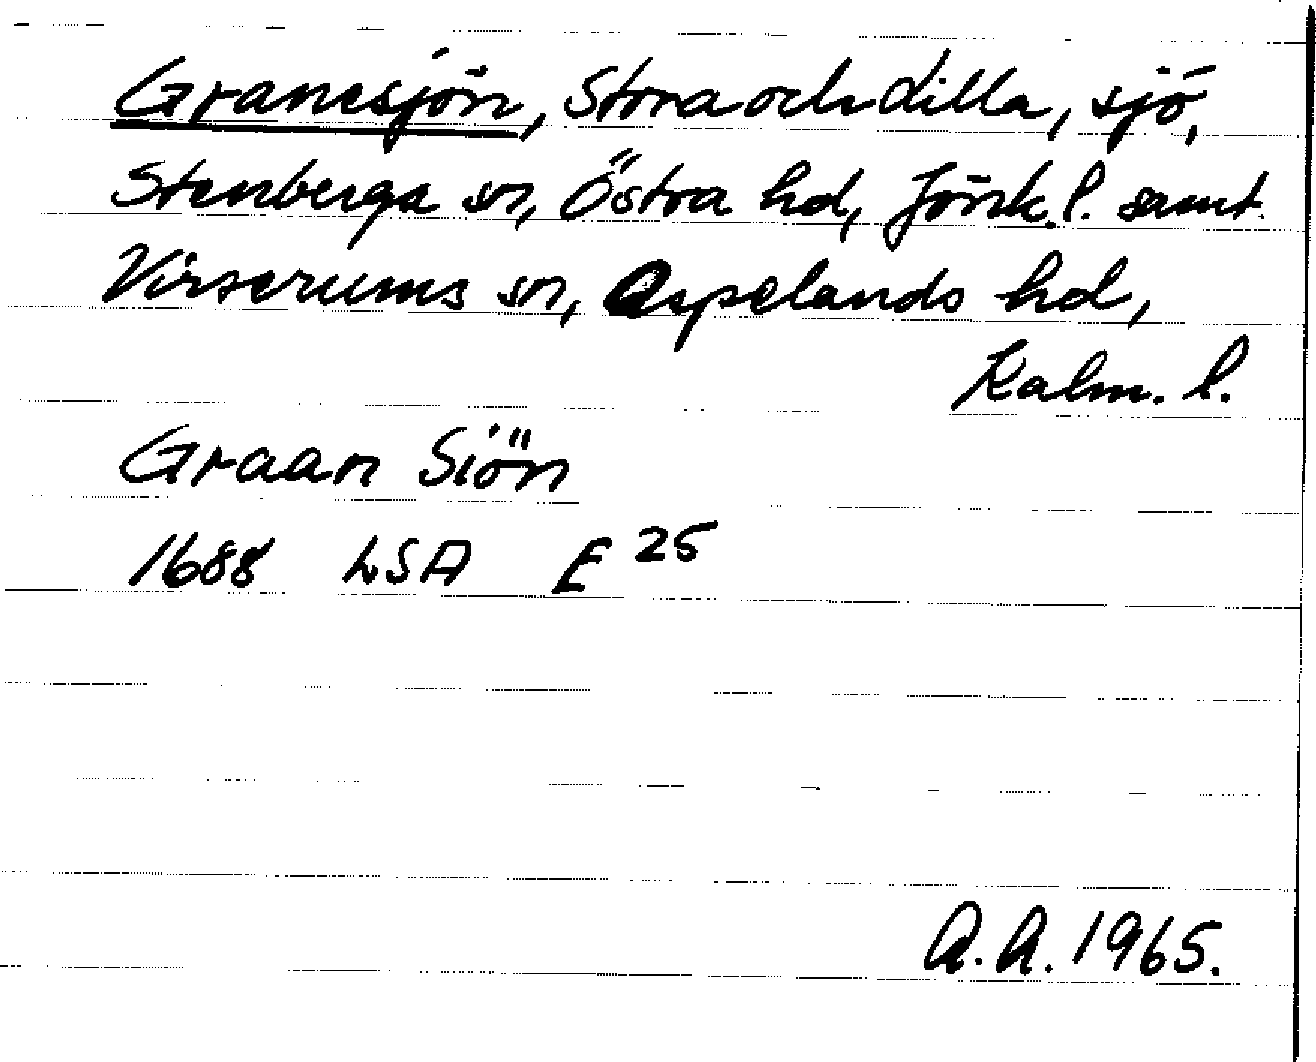 Granesjön, Stora och Lilla, sjö,
Stenberga sn, Östra hd, Jönk. l. samt
Virserums sn, Aspelands hd,
Kalm. l.
Graan Siön
1688 LSA E 25
A.A. 1965.